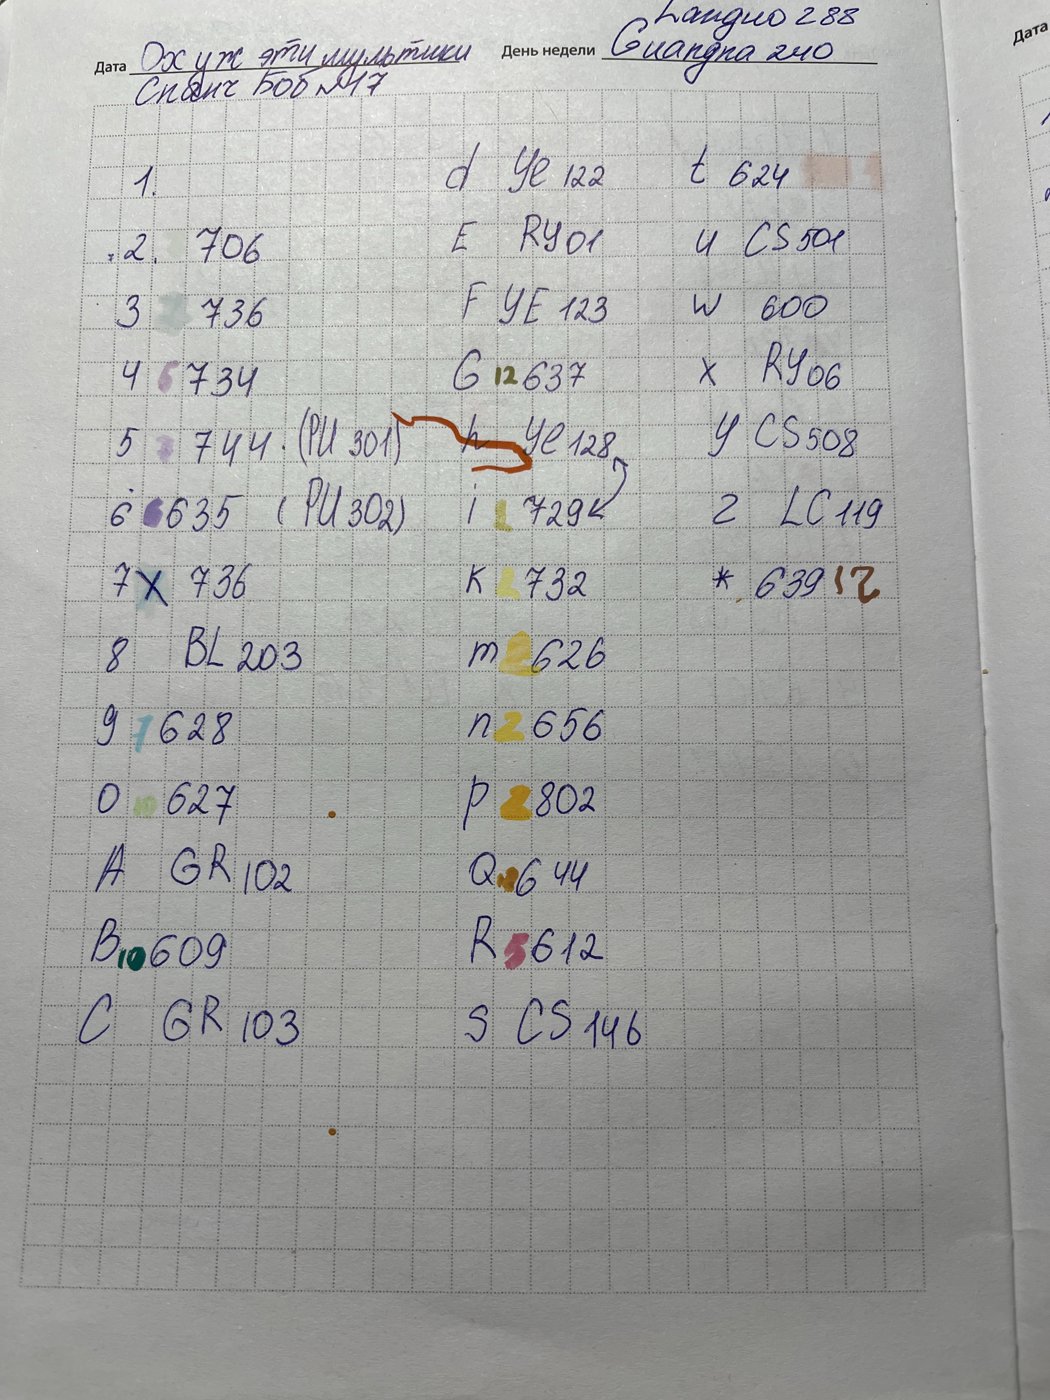 Ландио 288
Дата Ох уж эти мультики День недели Guangna 240
Спанч Боб №17
Дата
1.
2. 706
3 7 736
4 5 734
5 7 744. (PU 301)
6 6 635 (PU 302)
7 X 736
8 BL 203
9 7 628
0 10 627
A GR 102
B 10 609
C GR 103
d Ye 122
E RY01
F YE 123
G 12 637
h Ye 128
i 2 729
K 2 732
m 2 626
n 2 656
p 2 802
Q 644
R 5 612
S CS 146
t 624
u CS 501
w 600
x RY06
y CS 508
z LC 119
* 639 12